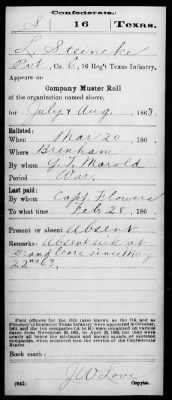 Confederate.
S 16 Texas.
L. Steincke
Pvt, Co. E, 16 Reg't Texas Infantry,
Appears on
Company Muster Roll
of the organization named above,
for July & Aug, 1863.
Enlisted:
When Mar 20, 186
Where Brenham
By whom G. T. Marold
Period War.
Last paid:
By whom Capt. Flowers
To what time Feb 28, 186
Present or absent Absent
Remarks: Absent sick at
Grand Ecore since May
22nd 63.
Book mark:
J W Love
(642) Copyist.